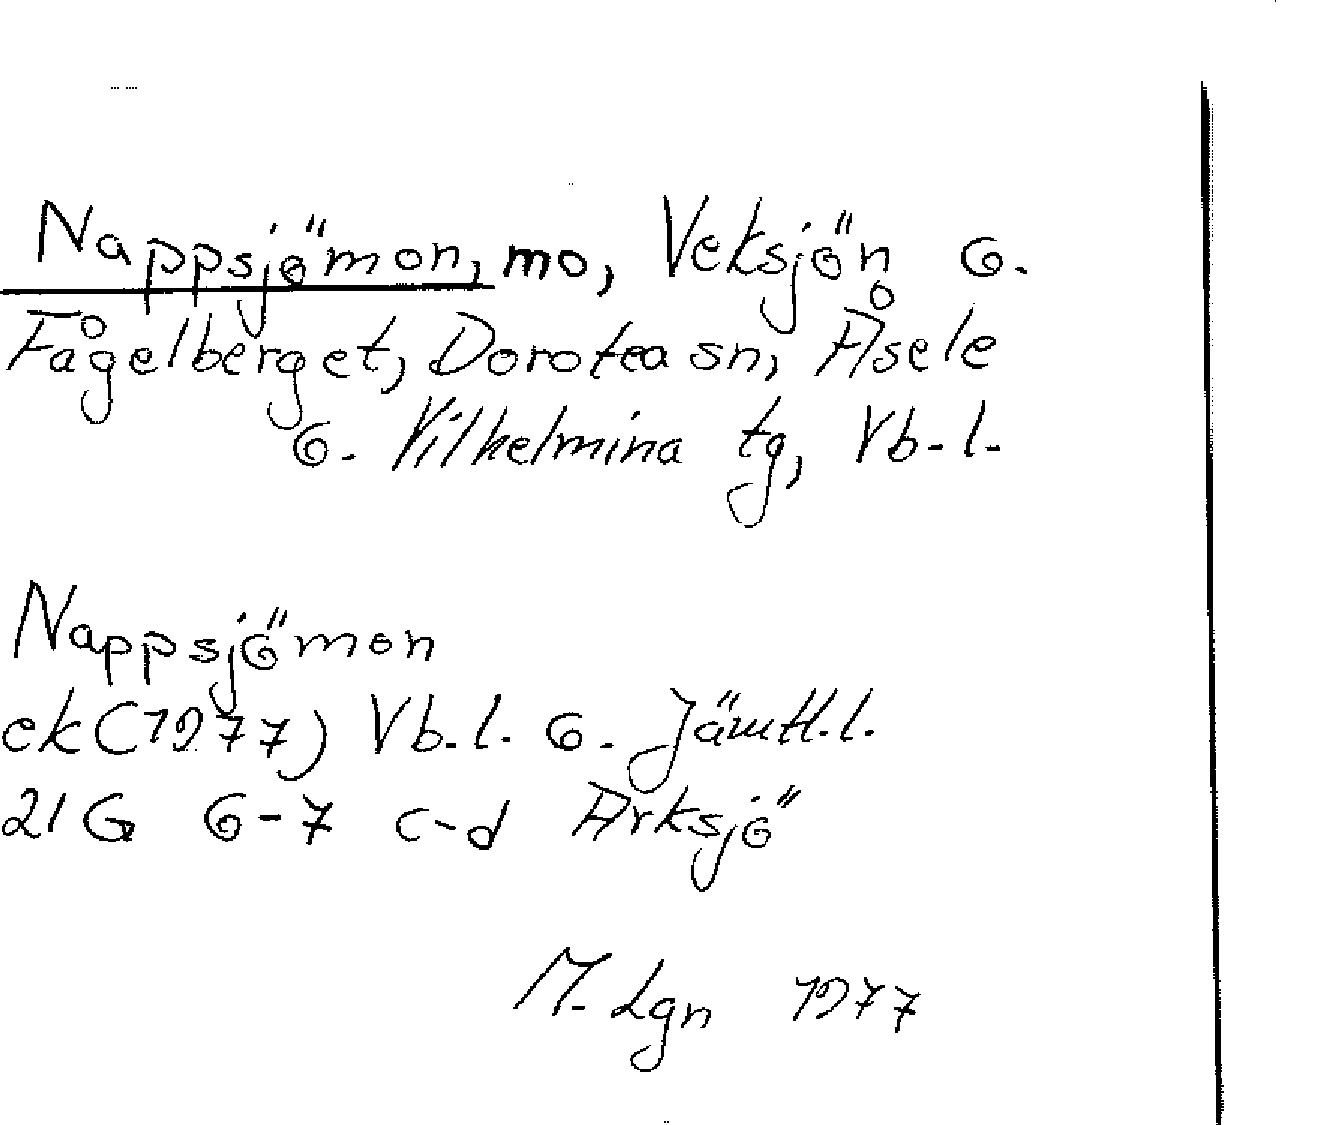 Nappsjömon, mo, Veksjön o.
Fågelberget, Dorotea sn, Åsele
o. Vilhelmina tg, Vb. l.
Nappsjömon
ek (1977) Vb. l. o. Jämtl. l.
21 G 6-7 c-d Arksjö
M. Lgn 1977